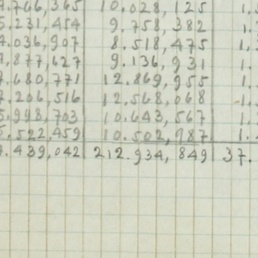 .766,365 10.028,125 1.
5.231,454 9.758,382 1.
.036,907 8.518,475 1.
.877,627 9.136,931 1.
.680,771 12.869,955 1.
.206,516 12.568,068 -1.
5.998,703 10.643,567 1.
5.522,459 10.502,987 1.
.439,042 212.934,849 37.